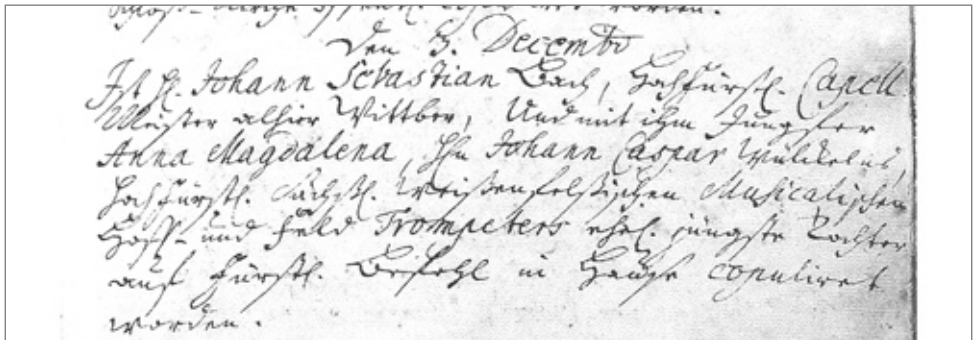 Schloß-Kirche öffentl. worden.
Den 3. Decembr
Ist H. Johann Sebastian Bach, HochFürstl. Capell
Meister alhier Wittber, Und mit ihm Jungfer
Anna Magdalena, Hn Johann Caspar Wülckens,
HochFürstl. Sächsl. Weißenfelsischen Musicalischen
Hoff- und Feld Trompeters ehel. jüngste Tochter,
auf Fürstl. Befehl im Hause copuliret
worden.